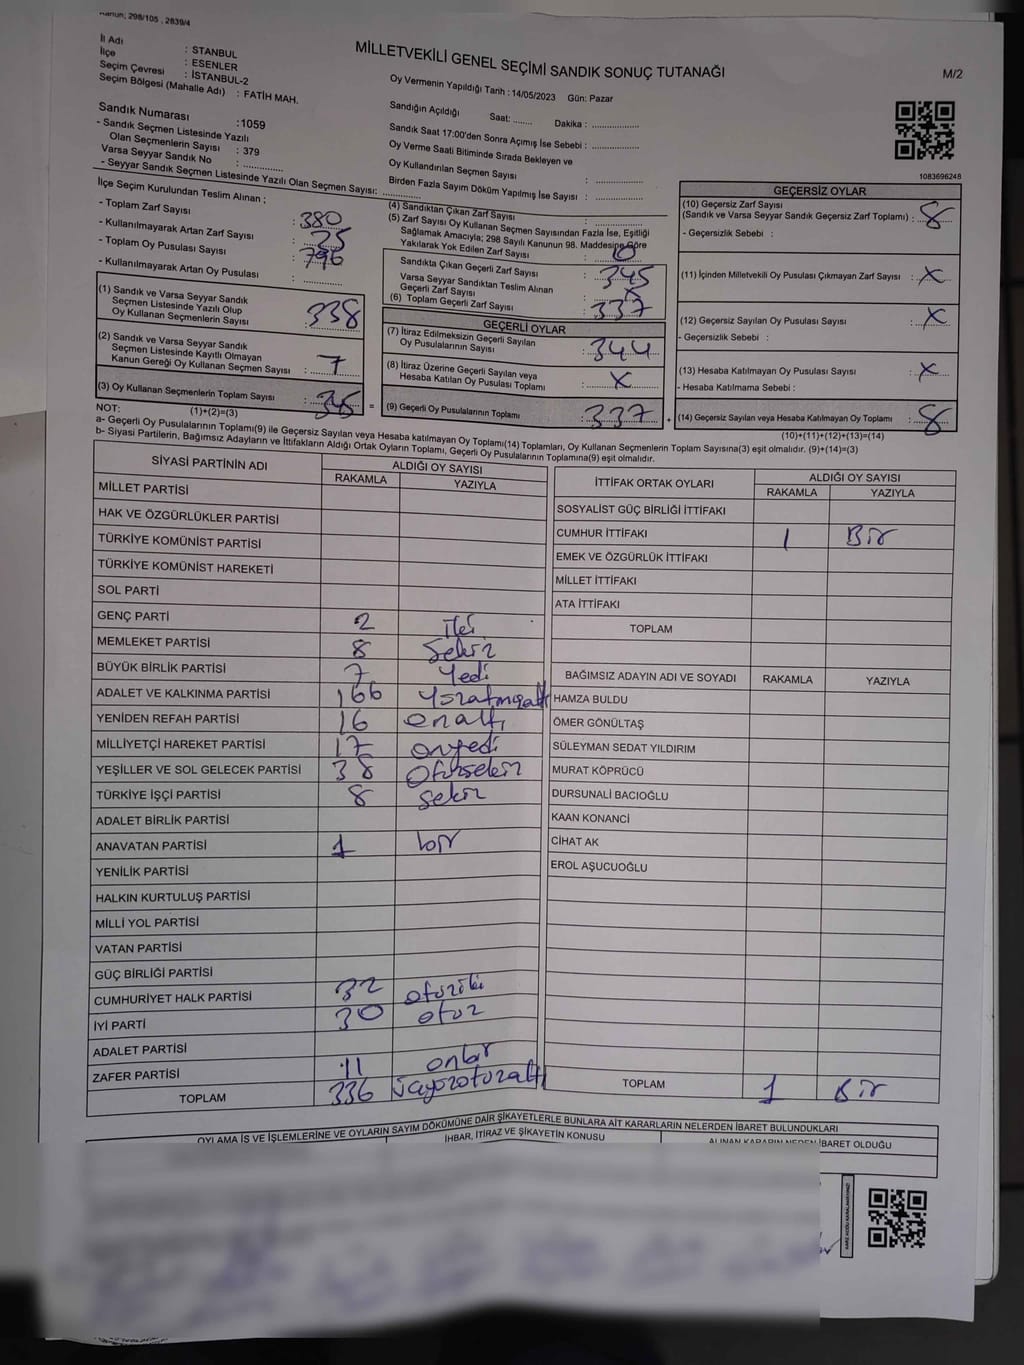 Kanun; 298/105 , 2839/4
İl Adı : STANBUL
İlçe : ESENLER
Seçim Çevresi : İSTANBUL-2
Seçim Bölgesi (Mahalle Adı) : FATİH MAH.
MİLLETVEKİLİ GENEL SEÇİMİ SANDIK SONUÇ TUTANAĞI
M/2
Oy Vermenin Yapıldığı Tarih : 14/05/2023 Gün: Pazar
Sandığın Açıldığı Saat: ....... Dakika : ...................
Sandık Saat 17:00'den Sonra Açımış İse Sebebi : ...................
Oy Verme Saati Bitiminde Sırada Bekleyen ve
Oy Kullandırılan Seçmen Sayısı : ...................
Birden Fazla Sayım Döküm Yapılmış İse Sayısı : ...................
Sandık Numarası :1059
- Sandık Seçmen Listesinde Yazılı
Olan Seçmenlerin Sayısı : 379
Varsa Seyyar Sandık No : ................
- Seyyar Sandık Seçmen Listesinde Yazılı Olan Seçmen Sayısı: ................
1083696248
İlçe Seçim Kurulundan Teslim Alınan ;
- Toplam Zarf Sayısı : 380
- Kullanılmayarak Artan Zarf Sayısı : 25
- Toplam Oy Pusulası Sayısı : 796
- Kullanılmayarak Artan Oy Pusulası : ................
(1) Sandık ve Varsa Seyyar Sandık
Seçmen Listesinde Yazılı Olup
Oy Kullanan Seçmenlerin Sayısı : 338
(2) Sandık ve Varsa Seyyar Sandık
Seçmen Listesinde Kayıtlı Olmayan
Kanun Gereği Oy Kullanan Seçmen Sayısı : 7
(3) Oy Kullanan Seçmenlerin Toplam Sayısı : 345 =
(1)+(2)=(3)
(4) Sandıktan Çıkan Zarf Sayısı : ................
(5) Zarf Sayısı Oy Kullanan Seçmen Sayısından Fazla İse, Eşitliği
Sağlamak Amacıyla; 298 Sayılı Kanunun 98. Maddesine Göre
Yakılarak Yok Edilen Zarf Sayısı : 10
Sandıkta Çıkan Geçerli Zarf Sayısı : 345
Varsa Seyyar Sandıktan Teslim Alınan
Geçerli Zarf Sayısı : X
(6) Toplam Geçerli Zarf Sayısı : 337
GEÇERLİ OYLAR
(7) İtiraz Edilmeksizin Geçerli Sayılan
Oy Pusulalarının Sayısı : 344
(8) İtiraz Üzerine Geçerli Sayılan veya
Hesaba Katılan Oy Pusulası Toplamı : X
(9) Geçerli Oy Pusulalarının Toplamı : 337 +
GEÇERSİZ OYLAR
(10) Geçersiz Zarf Sayısı
(Sandık ve Varsa Seyyar Sandık Geçersiz Zarf Toplamı) : 8
- Geçersizlik Sebebi :
(11) İçinden Milletvekili Oy Pusulası Çıkmayan Zarf Sayısı : X
(12) Geçersiz Sayılan Oy Pusulası Sayısı : X
- Geçersizlik Sebebi :
(13) Hesaba Katılmayan Oy Pusulası Sayısı : X
- Hesaba Katılmama Sebebi :
(14) Geçersiz Sayılan veya Hesaba Katılmayan Oy Toplamı : 8
(10)+(11)+(12)+(13)=(14)
NOT:
a- Geçerli Oy Pusulalarının Toplamı(9) ile Geçersiz Sayılan veya Hesaba katılmayan Oy Toplamı(14) Toplamları, Oy Kullanan Seçmenlerin Toplam Sayısına(3) eşit olmalıdır. (9)+(14)=(3)
b- Siyasi Partilerin, Bağımsız Adayların ve İttifakların Aldığı Ortak Oyların Toplamı, Geçerli Oy Pusulalarının Toplamına(9) eşit olmalıdır.
SİYASİ PARTİNİN ADI ALDIĞI OY SAYISI
RAKAMLA YAZIYLA
MİLLET PARTİSİ
HAK VE ÖZGÜRLÜKLER PARTİSİ
TÜRKİYE KOMÜNİST PARTİSİ
TÜRKİYE KOMÜNİST HAREKETİ
SOL PARTİ
GENÇ PARTİ 2 iki
MEMLEKET PARTİSİ 8 Sekiz
BÜYÜK BİRLİK PARTİSİ 7 Yedi
ADALET VE KALKINMA PARTİSİ 166 Yüzatmışaltı
YENİDEN REFAH PARTİSİ 16 onaltı
MİLLİYETÇİ HAREKET PARTİSİ 17 onyedi
YEŞİLLER VE SOL GELECEK PARTİSİ 38 Otuzsekiz
TÜRKİYE İŞÇİ PARTİSİ 8 Sekiz
ADALET BİRLİK PARTİSİ
ANAVATAN PARTİSİ 1 bir
YENİLİK PARTİSİ
HALKIN KURTULUŞ PARTİSİ
MİLLİ YOL PARTİSİ
VATAN PARTİSİ
GÜÇ BİRLİĞİ PARTİSİ
CUMHURİYET HALK PARTİSİ 32 otuziki
İYİ PARTİ 30 otuz
ADALET PARTİSİ
ZAFER PARTİSİ 11 onbir
TOPLAM 336 üçyüzotuzaltı
İTTİFAK ORTAK OYLARI ALDIĞI OY SAYISI
RAKAMLA YAZIYLA
SOSYALİST GÜÇ BİRLİĞİ İTTİFAKI
CUMHUR İTTİFAKI 1 Bir
EMEK VE ÖZGÜRLÜK İTTİFAKI
MİLLET İTTİFAKI
ATA İTTİFAKI
TOPLAM
BAĞIMSIZ ADAYIN ADI VE SOYADI RAKAMLA YAZIYLA
HAMZA BULDU
ÖMER GÖNÜLTAŞ
SÜLEYMAN SEDAT YILDIRIM
MURAT KÖPRÜCÜ
DURSUNALİ BACIOĞLU
KAAN KONANCİ
CİHAT AK
EROL AŞUCUOĞLU
TOPLAM 1 Bir
OYLAMA İŞ VE İŞLEMLERİNE VE OYLARIN SAYIM DÖKÜMÜNE DAİR ŞİKAYETLERLE BUNLARA AİT KARARLARIN NELERDEN İBARET BULUNDUKLARI
İHBAR, İTİRAZ VE ŞİKAYETİN KONUSU ALINAN KARARIN NEDEN İBARET OLDUĞU